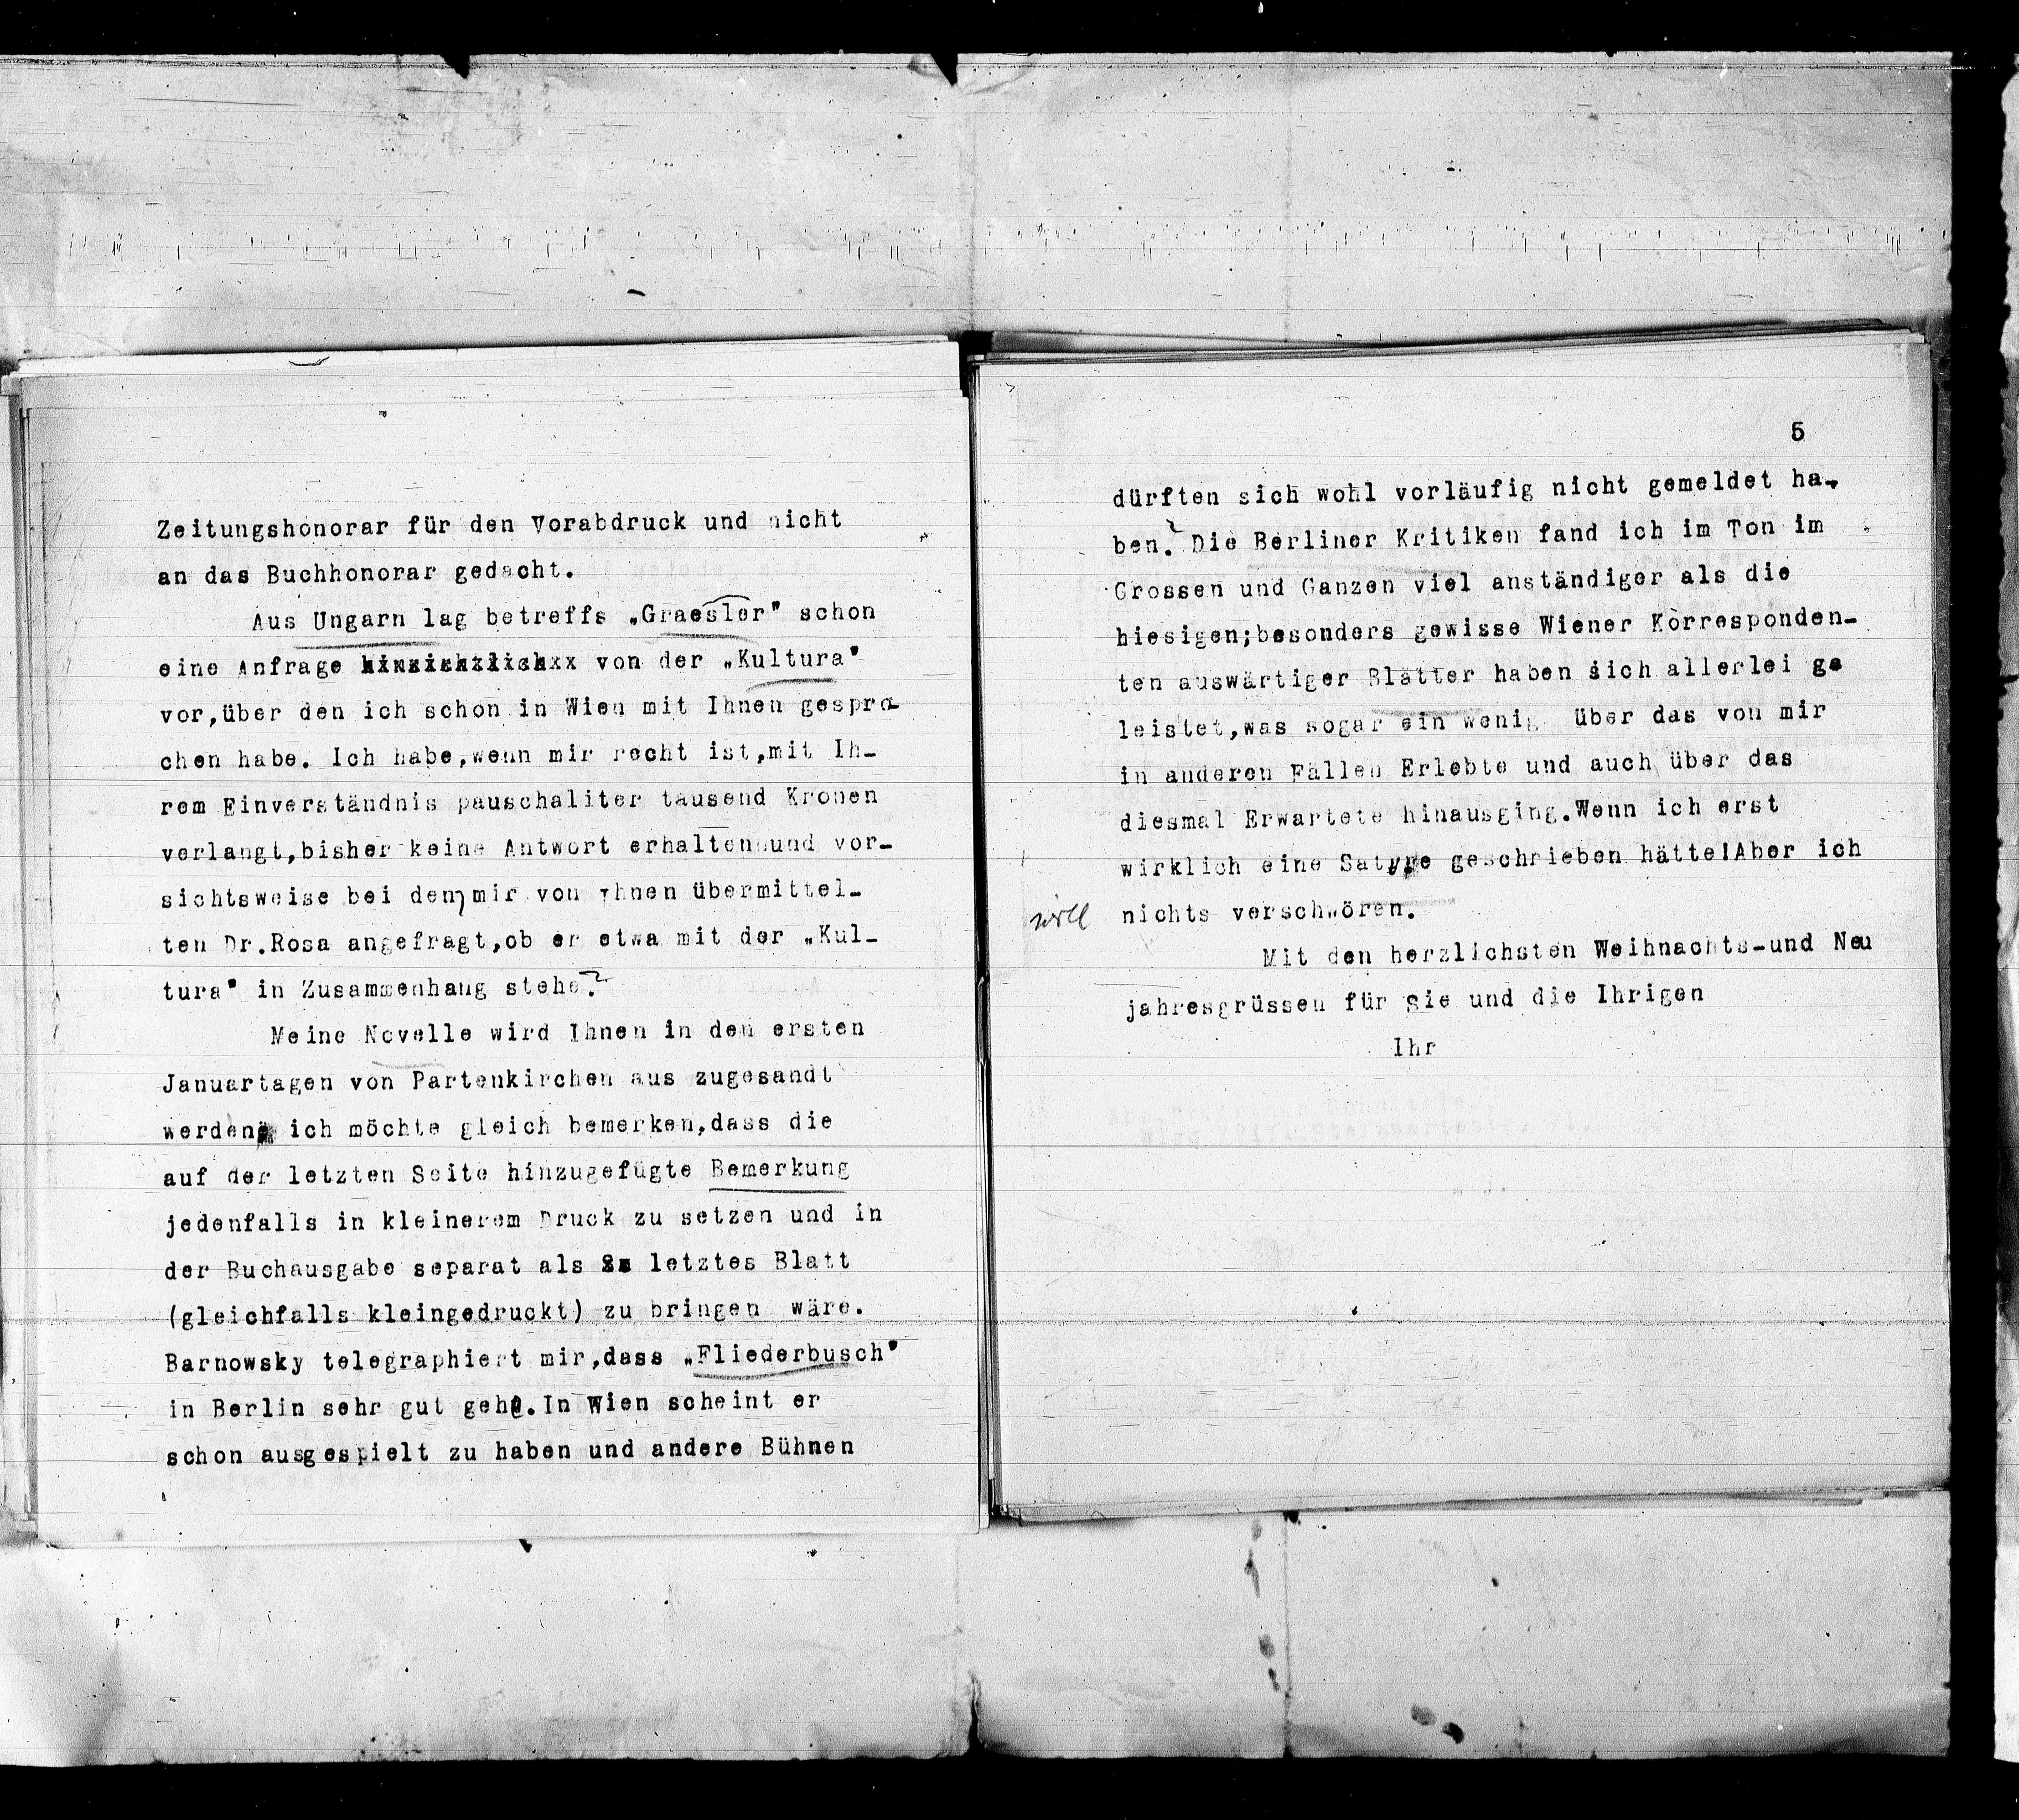 Zeitungshonorar für den Vorabdruck und nicht
an das Buchhonorar gedacht.
Aus Ungarn lag betreffs „Graesler" schon
eine Anfrage von der „Kultura"
vor,über den ich schon in Wien mit Ihnen gespro-
chen habe. Ich habe,wenn mir recht ist,mit Ih-
rem Einverständnis pauschaliter tausend Kronen
verlangt,bisher keine Antwort erhalten und vor-
sichtsweise bei den mir von Ihnen übermittel-
ten Dr.Rosa angefragt,ob er etwa mit der „Kul-
tura" in Zusammenhang stehe?
Meine Novelle wird Ihnen in den ersten
Januartagen von Partenkirchen aus zugesandt
werden, ich möchte gleich bemerken,dass die
auf der letzten Seite hinzugefügte Bemerkung
jedenfalls in kleinerem Druck zu setzen und in
der Buchausgabe separat als letztes Blatt
(gleichfalls kleingedruckt) zu bringen wäre.
Barnowsky telegraphiert mir,dass „Fliederbusch"
in Berlin sehr gut gehe.In Wien scheint er
schon ausgespielt zu haben und andere Bühnen
5
dürften sich wohl vorläufig nicht gemeldet ha-
ben? Die Berliner Kritiken fand ich im Ton im
Grossen und Ganzen viel anständiger als die
hiesigen;besonders gewisse Wiener Korresponden-
ten auswärtiger Blätter haben sich allerlei ge
leistet,was sogar ein wenig über das von mir
in anderen Fällen Erlebte und auch über das
diesmal Erwartete hinausging.Wenn ich erst
wirklich eine Satyre geschrieben hätte!Aber ich
will nichts verschwören.
Mit den herzlichsten Weihnachts-und Neu
jahresgrüssen für Sie und die Ihrigen
Ihr